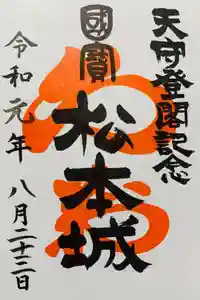 天守登閣記念
國寶
松本城
令和元年
八月二十三日